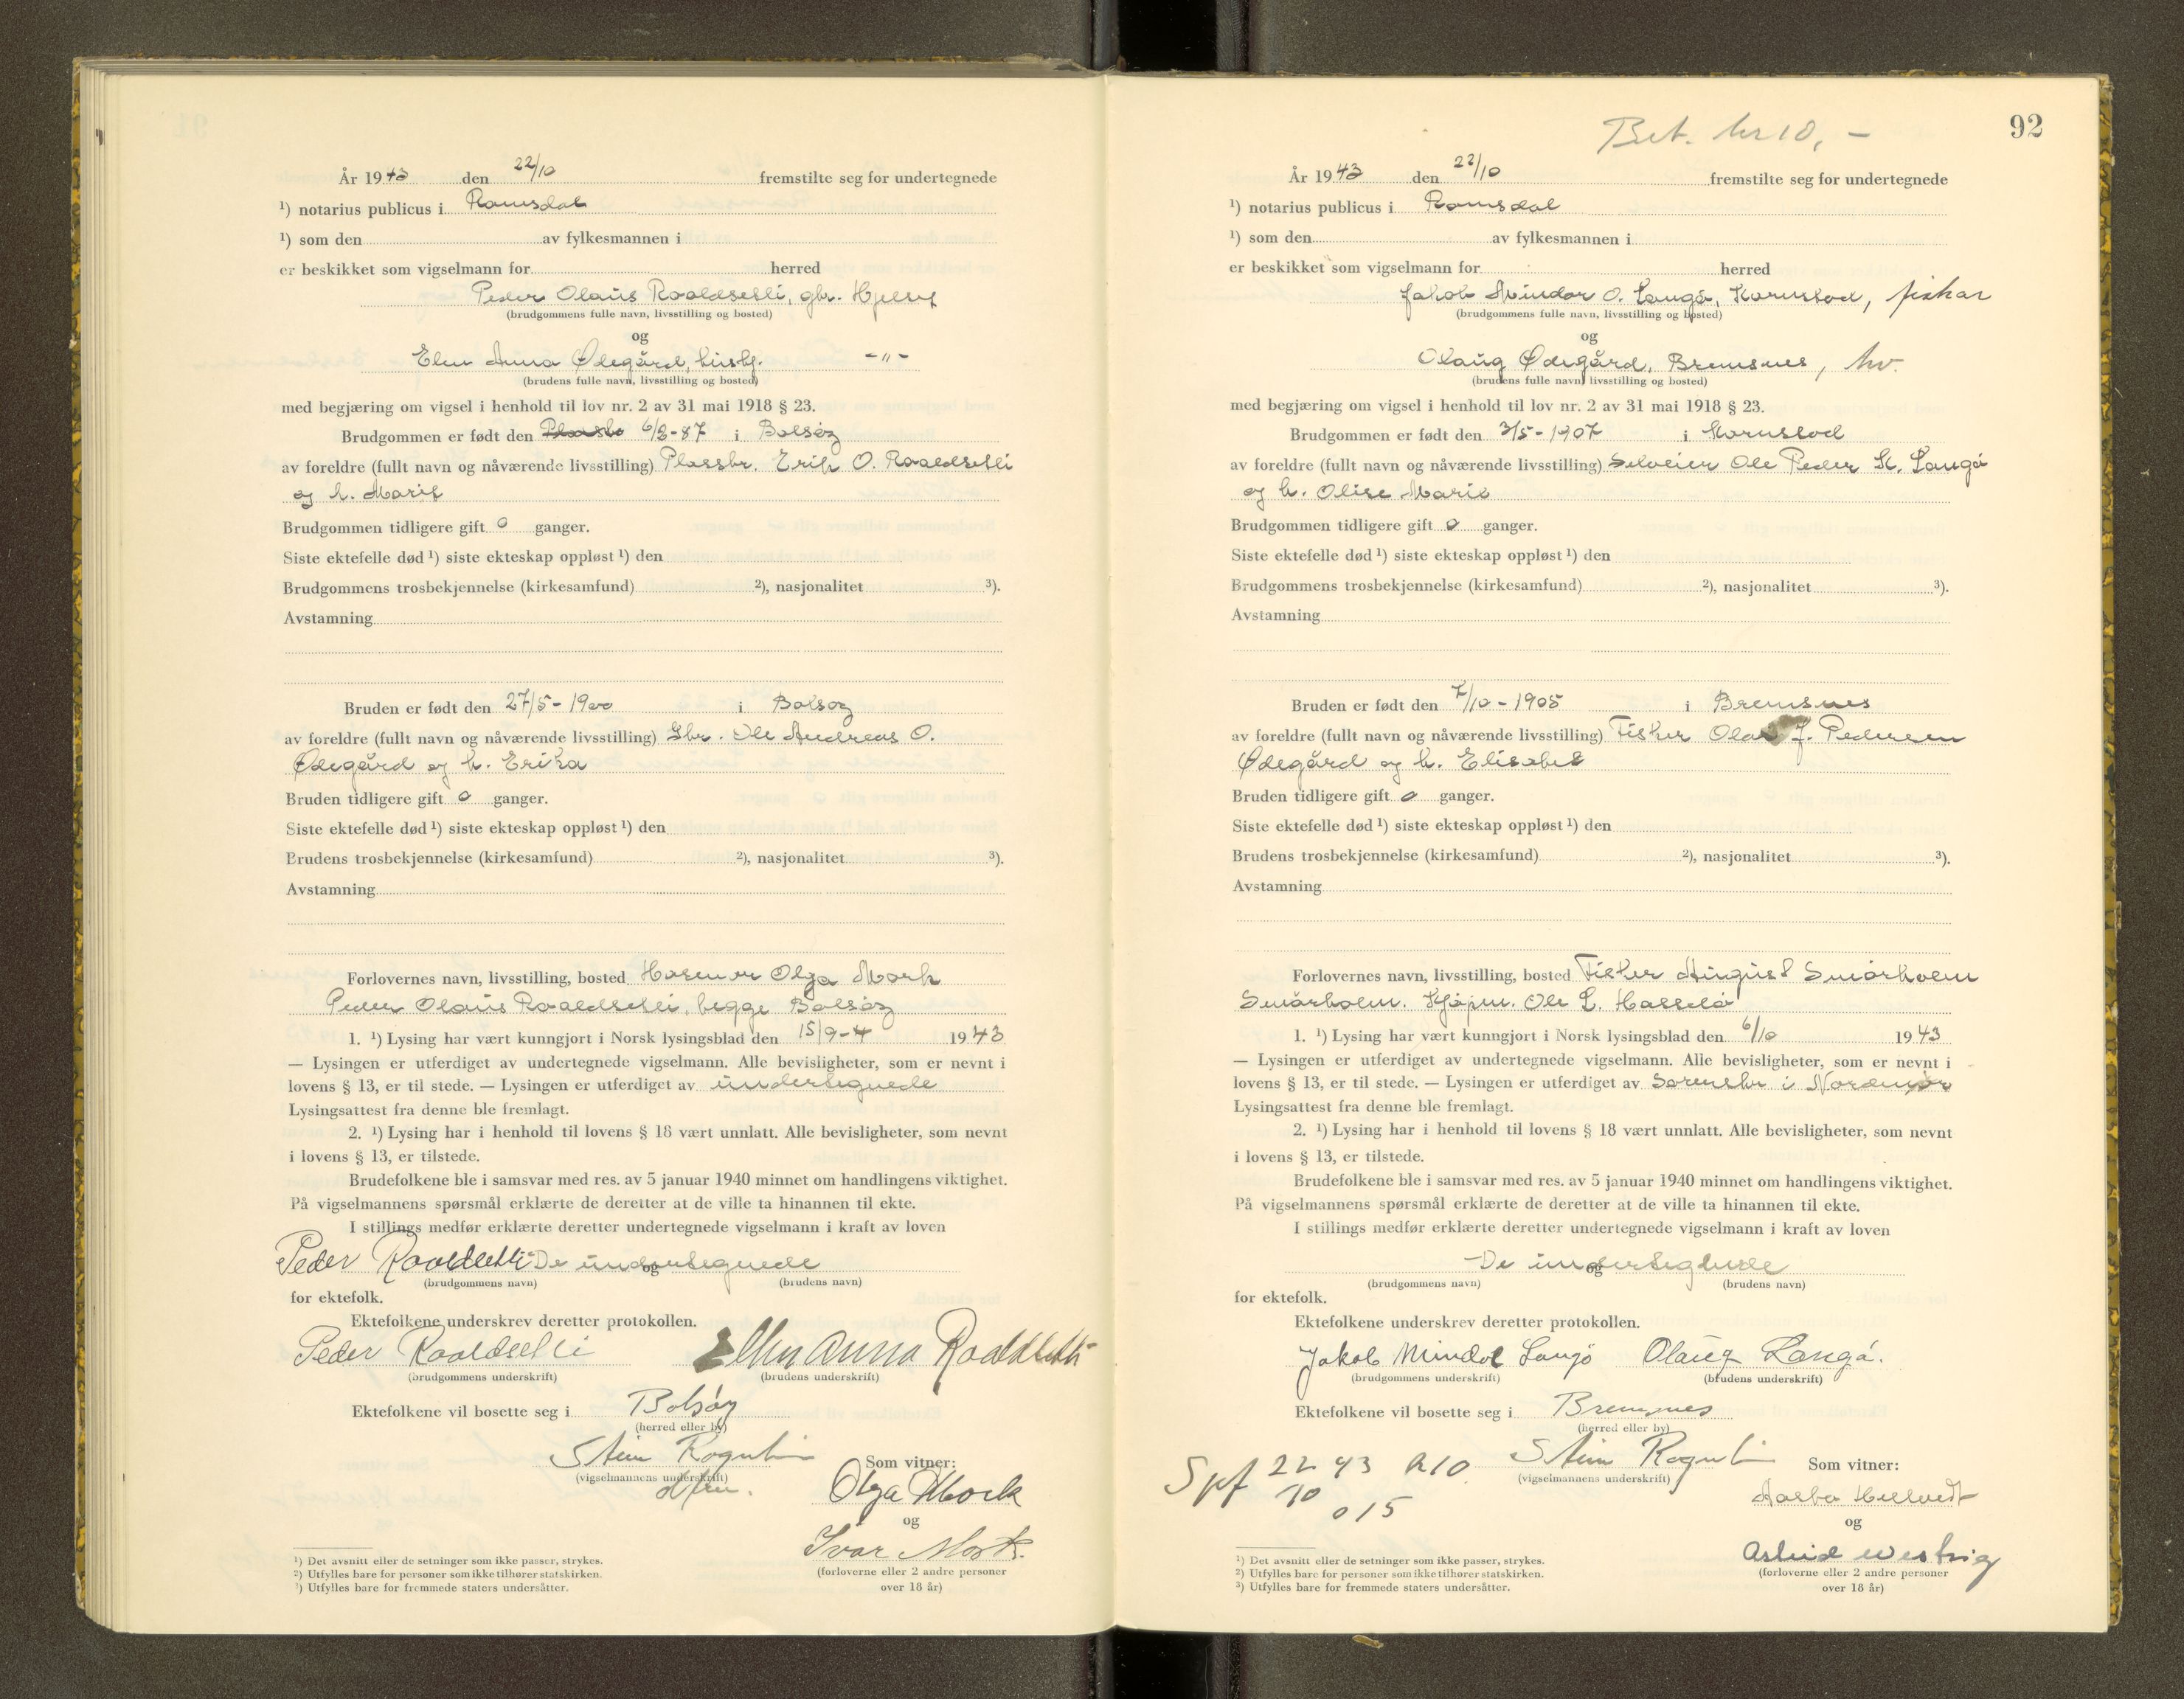 År 1943 den 22/10 fremstilte seg for undertegnede
¹) notarius publicus i Romsdal
¹) som den av fylkesmannen i
er beskikket som vigselmann for herred
Peder Olaus Roaldsetli, gbr. Hjelset
(brudgommens fulle navn, livsstilling og bosted)
og
Elen Anna Ødegård, hushj. -"-
(brudens fulle navn, livsstilling og bosted)
med begjæring om vigsel i henhold til lov nr. 2 av 31 mai 1918 § 23.
Brudgommen er født den 6/8-87 i Bolsøy
av foreldre (fullt navn og nåværende livsstilling) Plassbr. Erik O. Roaldsetli
og h. Marit
Brudgommen tidligere gift 0 ganger.
Siste ektefelle død ¹) siste ekteskap oppløst ¹) den
Brudgommens trosbekjennelse (kirkesamfund) ²), nasjonalitet ³).
Avstamning
Bruden er født den 27/5-1900 i Bolsøy
av foreldre (fullt navn og nåværende livsstilling) Gbr. Ole Andreas O.
Ødegård og h. Erika
Bruden tidligere gift 0 ganger.
Siste ektefelle død ¹) siste ekteskap oppløst ¹) den
Brudens trosbekjennelse (kirkesamfund) ²), nasjonalitet ³).
Avstamning
Forlovernes navn, livsstilling, bosted Olga Mork
Peder Olaus Roaldsetli, begge Bolsøy
1. ¹) Lysing har vært kunngjort i Norsk lysingsblad den 15/9-4 1943
— Lysingen er utferdiget av undertegnede vigselmann. Alle bevisligheter, som er nevnt i
lovens § 13, er til stede. — Lysingen er utferdiget av undertegnede
Lysingsattest fra denne ble fremlagt.
2. ¹) Lysing har i henhold til lovens § 18 vært unnlatt. Alle bevisligheter, som nevnt
i lovens § 13, er tilstede.
Brudefolkene ble i samsvar med res. av 5 januar 1940 minnet om handlingens viktighet.
På vigselmannens spørsmål erklærte de deretter at de ville ta hinannen til ekte.
I stillings medfør erklærte deretter undertegnede vigselmann i kraft av loven
Peder Roaldsetli De undertegnede
og
(brudgommens navn) (brudens navn)
for ektefolk.
Ektefolkene underskrev deretter protokollen.
Peder Roaldsetli Ellen Anna Roaldsetli
(brudgommens underskrift) (brudens underskrift)
Ektefolkene vil bosette seg i Bolsøy
(herred eller by)
Stein Rognlien
(vigselmannens underskrift)
Som vitner:
Olga Mork
og
Ivar Mork.
(forloverne eller 2 andre personer
over 18 år)
¹) Det avsnitt eller de setninger som ikke passer, strykes.
²) Utfylles bare for personer som ikke tilhører statskirken.
³) Utfylles bare for fremmede staters undersåtter.
Bet. kr 10,-
92
År 1943 den 22/10 fremstilte seg for undertegnede
¹) notarius publicus i Romsdal
¹) som den av fylkesmannen i
er beskikket som vigselmann for herred
Jakob Mindor O. Langø, Kornstad, fiskar
(brudgommens fulle navn, livsstilling og bosted)
og
Olaug Ødegård, Bremsnes, hv.
(brudens fulle navn, livsstilling og bosted)
med begjæring om vigsel i henhold til lov nr. 2 av 31 mai 1918 § 23.
Brudgommen er født den 3/5-1907 i Kornstad
av foreldre (fullt navn og nåværende livsstilling) Selveier Ole Peder K. Langø
og h. Olise Marie
Brudgommen tidligere gift 0 ganger.
Siste ektefelle død ¹) siste ekteskap oppløst ¹) den
Brudgommens trosbekjennelse (kirkesamfund) ²), nasjonalitet ³).
Avstamning
Bruden er født den 7/10-1905 i Bremsnes
av foreldre (fullt navn og nåværende livsstilling) Fisker J. Pedersen
Ødegård og h. Elisabet
Bruden tidligere gift 0 ganger.
Siste ektefelle død ¹) siste ekteskap oppløst ¹) den
Brudens trosbekjennelse (kirkesamfund) ²), nasjonalitet ³).
Avstamning
Forlovernes navn, livsstilling, bosted Fisker August Smørholm
Smørholm. Kjøpm. Ole L. Hasselø
1. ¹) Lysing har vært kunngjort i Norsk lysingsblad den 6/10 1943
— Lysingen er utferdiget av undertegnede vigselmann. Alle bevisligheter, som er nevnt i
lovens § 13, er til stede. — Lysingen er utferdiget av Sorenskr i Nordmør
Lysingsattest fra denne ble fremlagt.
2. ¹) Lysing har i henhold til lovens § 18 vært unnlatt. Alle bevisligheter, som nevnt
i lovens § 13, er tilstede.
Brudefolkene ble i samsvar med res. av 5 januar 1940 minnet om handlingens viktighet.
På vigselmannens spørsmål erklærte de deretter at de ville ta hinannen til ekte.
I stillings medfør erklærte deretter undertegnede vigselmann i kraft av loven
De undertegnede
og
(brudgommens navn) (brudens navn)
for ektefolk.
Ektefolkene underskrev deretter protokollen.
Jakob Mindor Langø Olaug Langø.
(brudgommens underskrift) (brudens underskrift)
Ektefolkene vil bosette seg i Bremsnes
(herred eller by)
Spf 22/10 43 a 10 Stein Rognlien
o 15
(vigselmannens underskrift)
Som vitner:
og
Astrid
(forloverne eller 2 andre personer
over 18 år)
¹) Det avsnitt eller de setninger som ikke passer, strykes.
²) Utfylles bare for personer som ikke tilhører statskirken.
³) Utfylles bare for fremmede staters undersåtter.